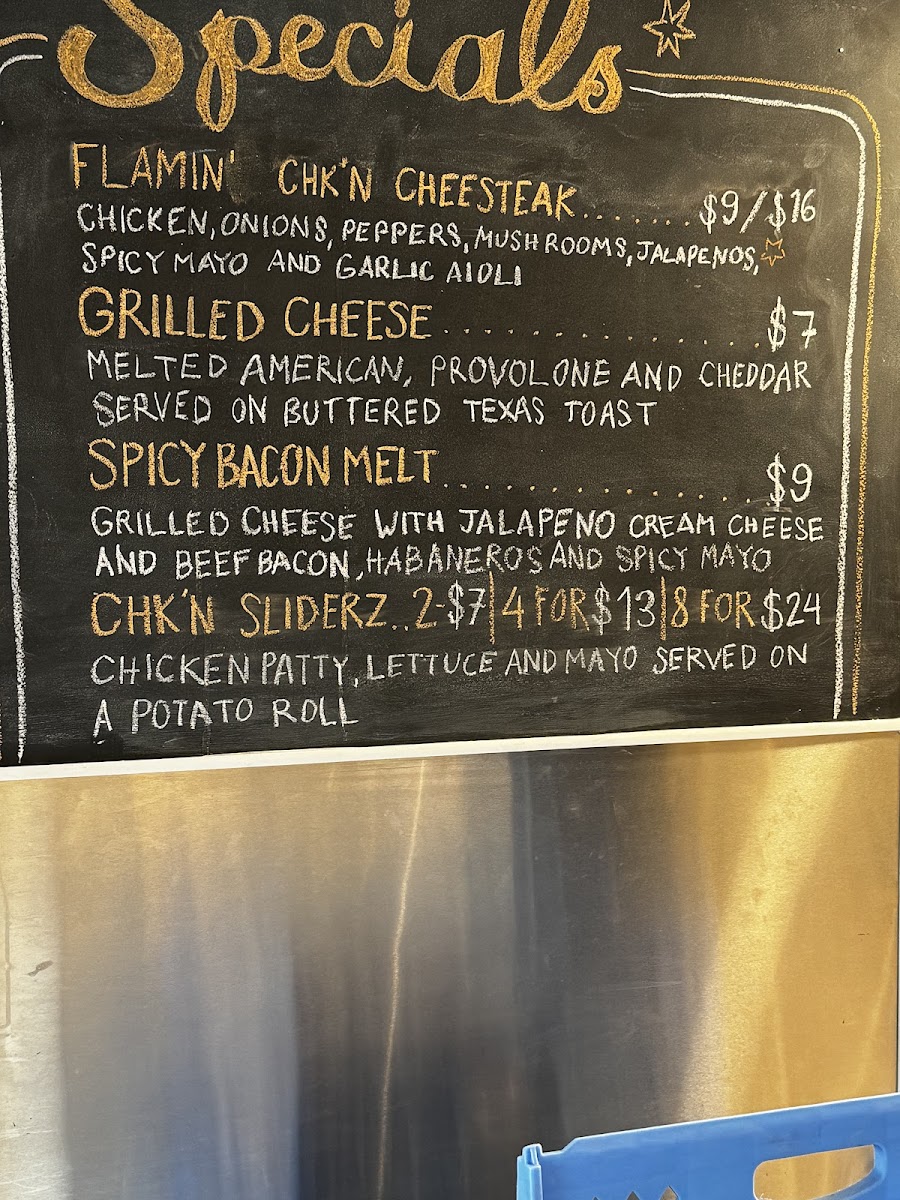 Specials
FLAMIN' CHK'N CHEESTEAK.......$9/$16
CHICKEN, ONIONS, PEPPERS, MUSHROOMS, JALAPENOS,
SPICY MAYO AND GARLIC AIOLI
GRILLED CHEESE..............$7
MELTED AMERICAN, PROVOLONE AND CHEDDAR
SERVED ON BUTTERED TEXAS TOAST
SPICY BACON MELT..............$9
GRILLED CHEESE WITH JALAPENO CREAM CHEESE
AND BEEF BACON, HABANEROS AND SPICY MAYO
CHK'N SLIDERZ..2-$7|4 FOR $13|8 FOR $24
CHICKEN PATTY, LETTUCE AND MAYO SERVED ON
A POTATO ROLL